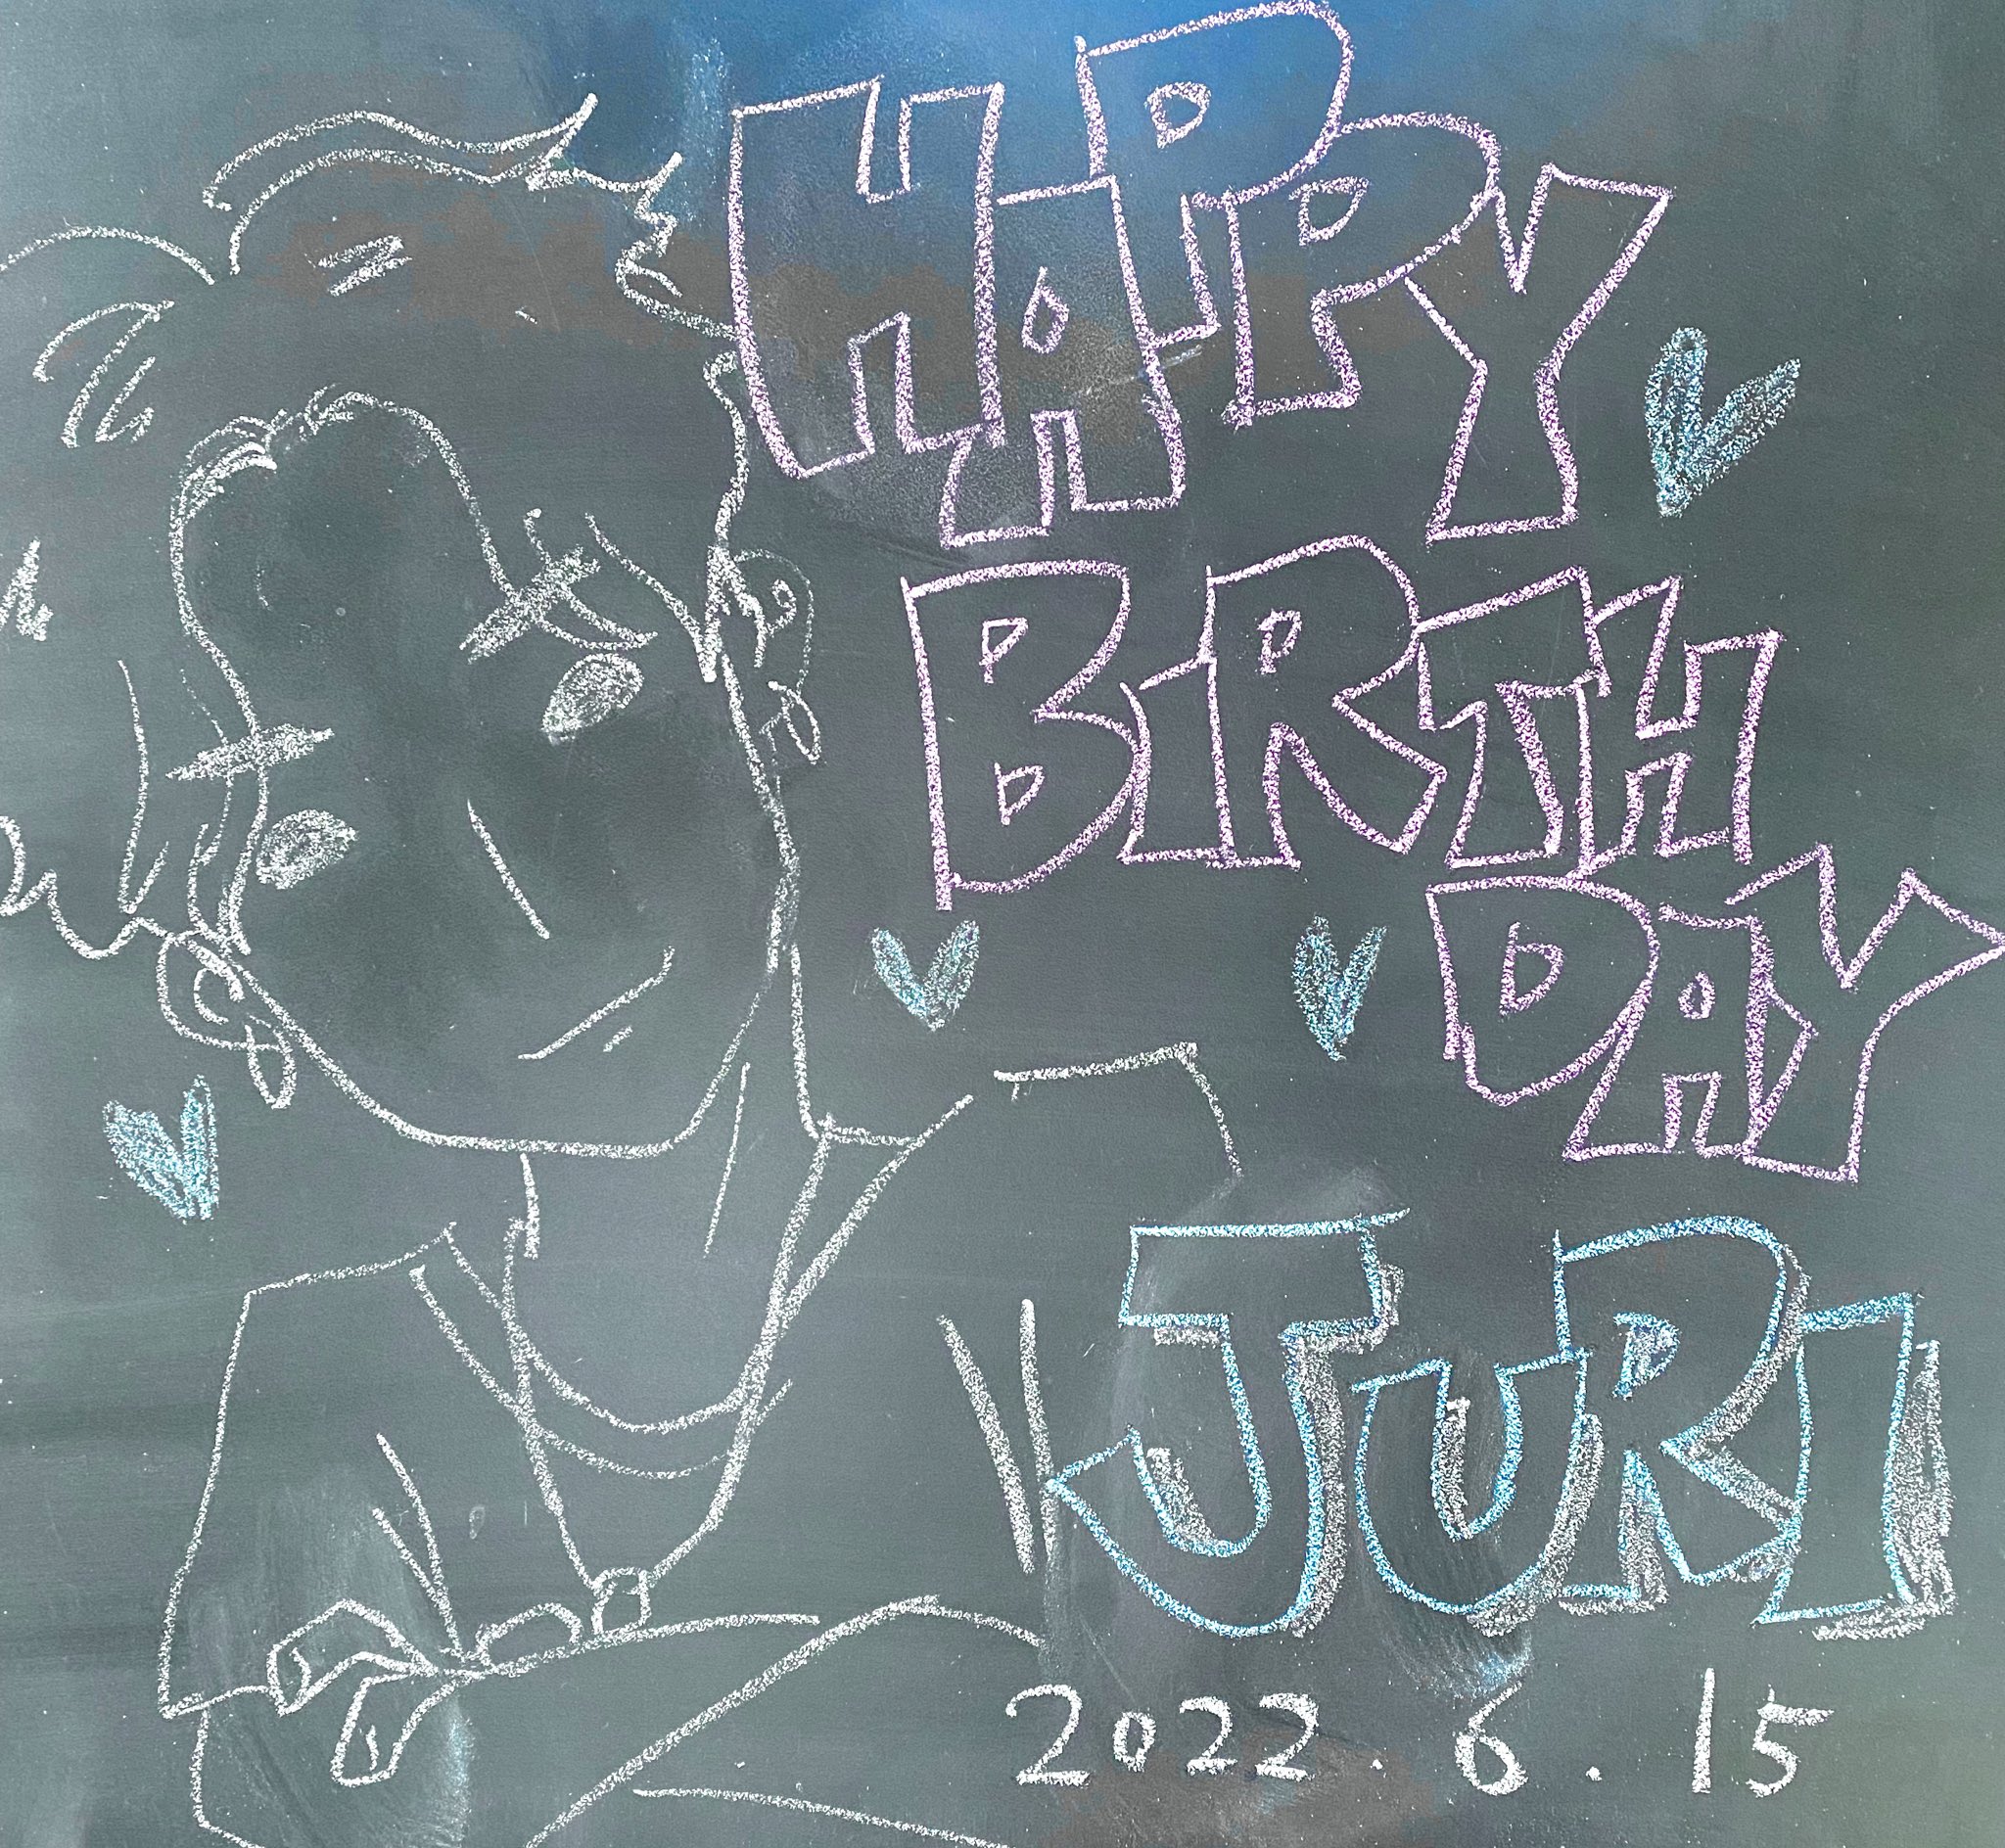 HAPPY
BIRTH
DAY
JURI
2022.6.15